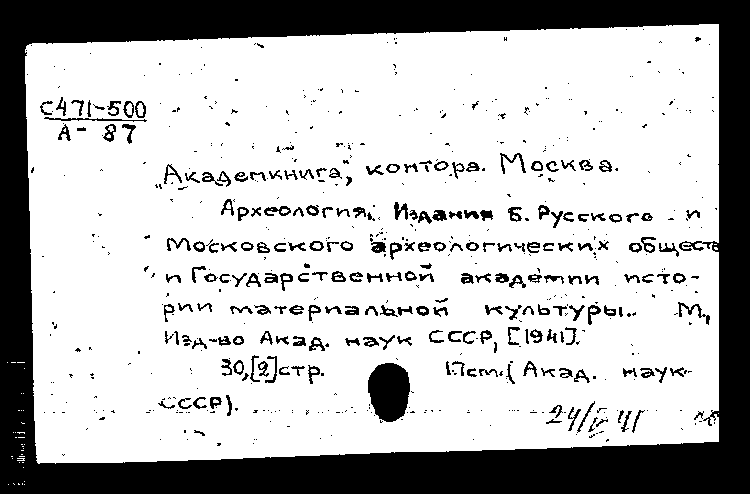 С471-500
А- 87
„Академкнига", контора. Москва.
Археология. Издания Б. Русского и
Московского археологических обществ
и Государственной академии исто-
рии материальной культуры. М.,
Изд-во Акад. наук СССР, [1941].
30,[2]стр. (Акад. наук
СССР).
24/V 41